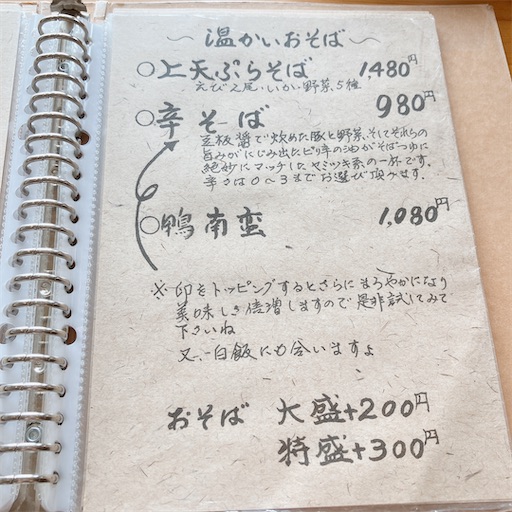 〜温かいおそば〜
○上天ぷらそば 1,480円
えび2尾・いか・野菜5種
○辛そば 980円
豆板醤で炒めた豚と野菜、そしてそれらの
旨みがにじみ出たピリ辛の油がそばつゆに
絶妙にマッチしたヤミツキ系の一杯です。
辛さは0〜3までお選び頂けます。
○鴨南蛮 1,080円
※印をトッピングするとさらにまろやかになり
美味しさ倍増しますので是非試してみて
下さいね
又、白飯にも合いますよ
おそば 大盛+200円
特盛+300円